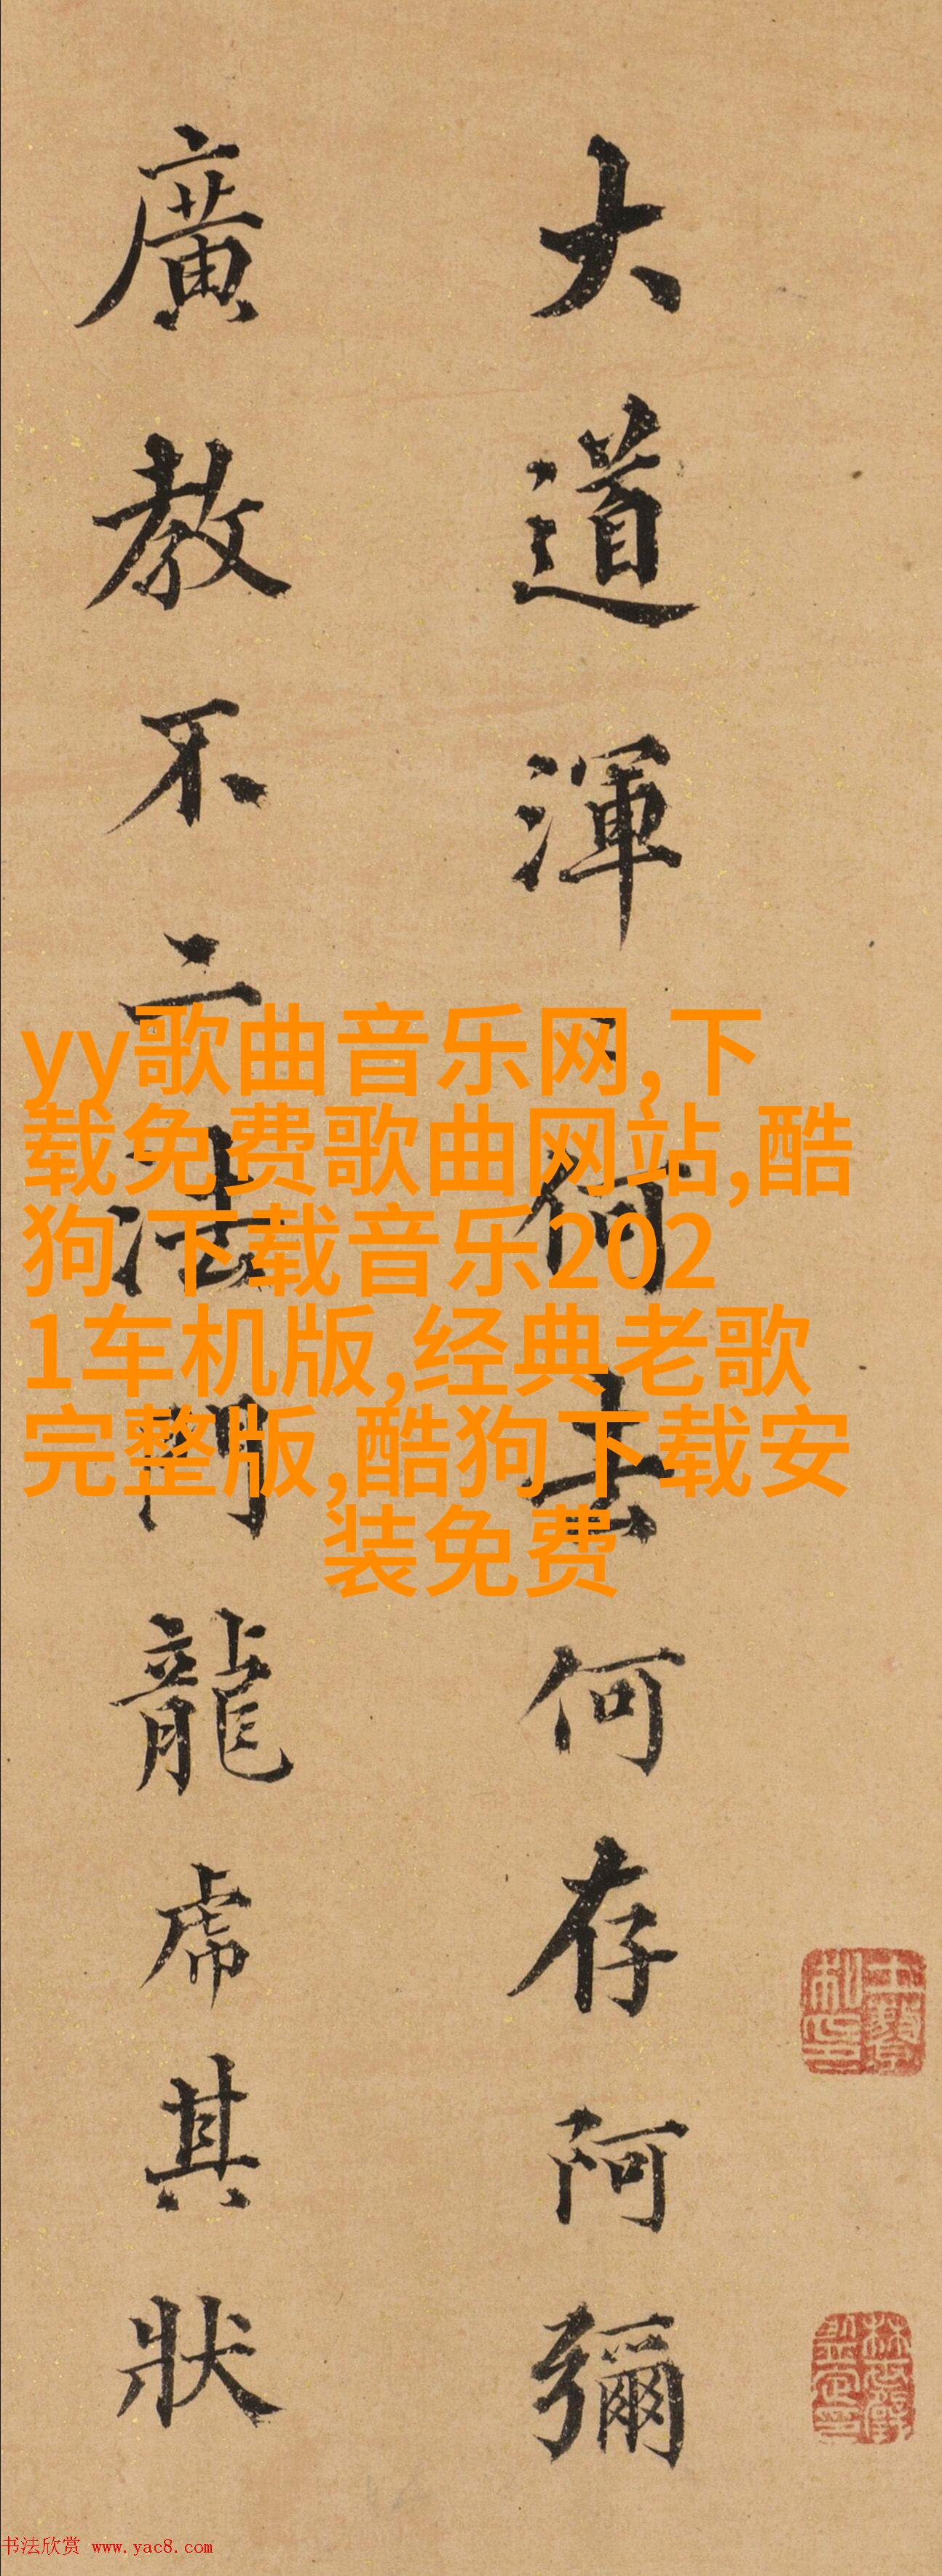 大道渾、何去何存阿彌
廣教不二法門龍虎其狀
yy歌曲音乐网,下
载免费歌曲网站,酷
狗下载音乐202
1车机版,经典老歌
完整版,酷狗下载安
装免费
书法欣赏 www.yac8.com